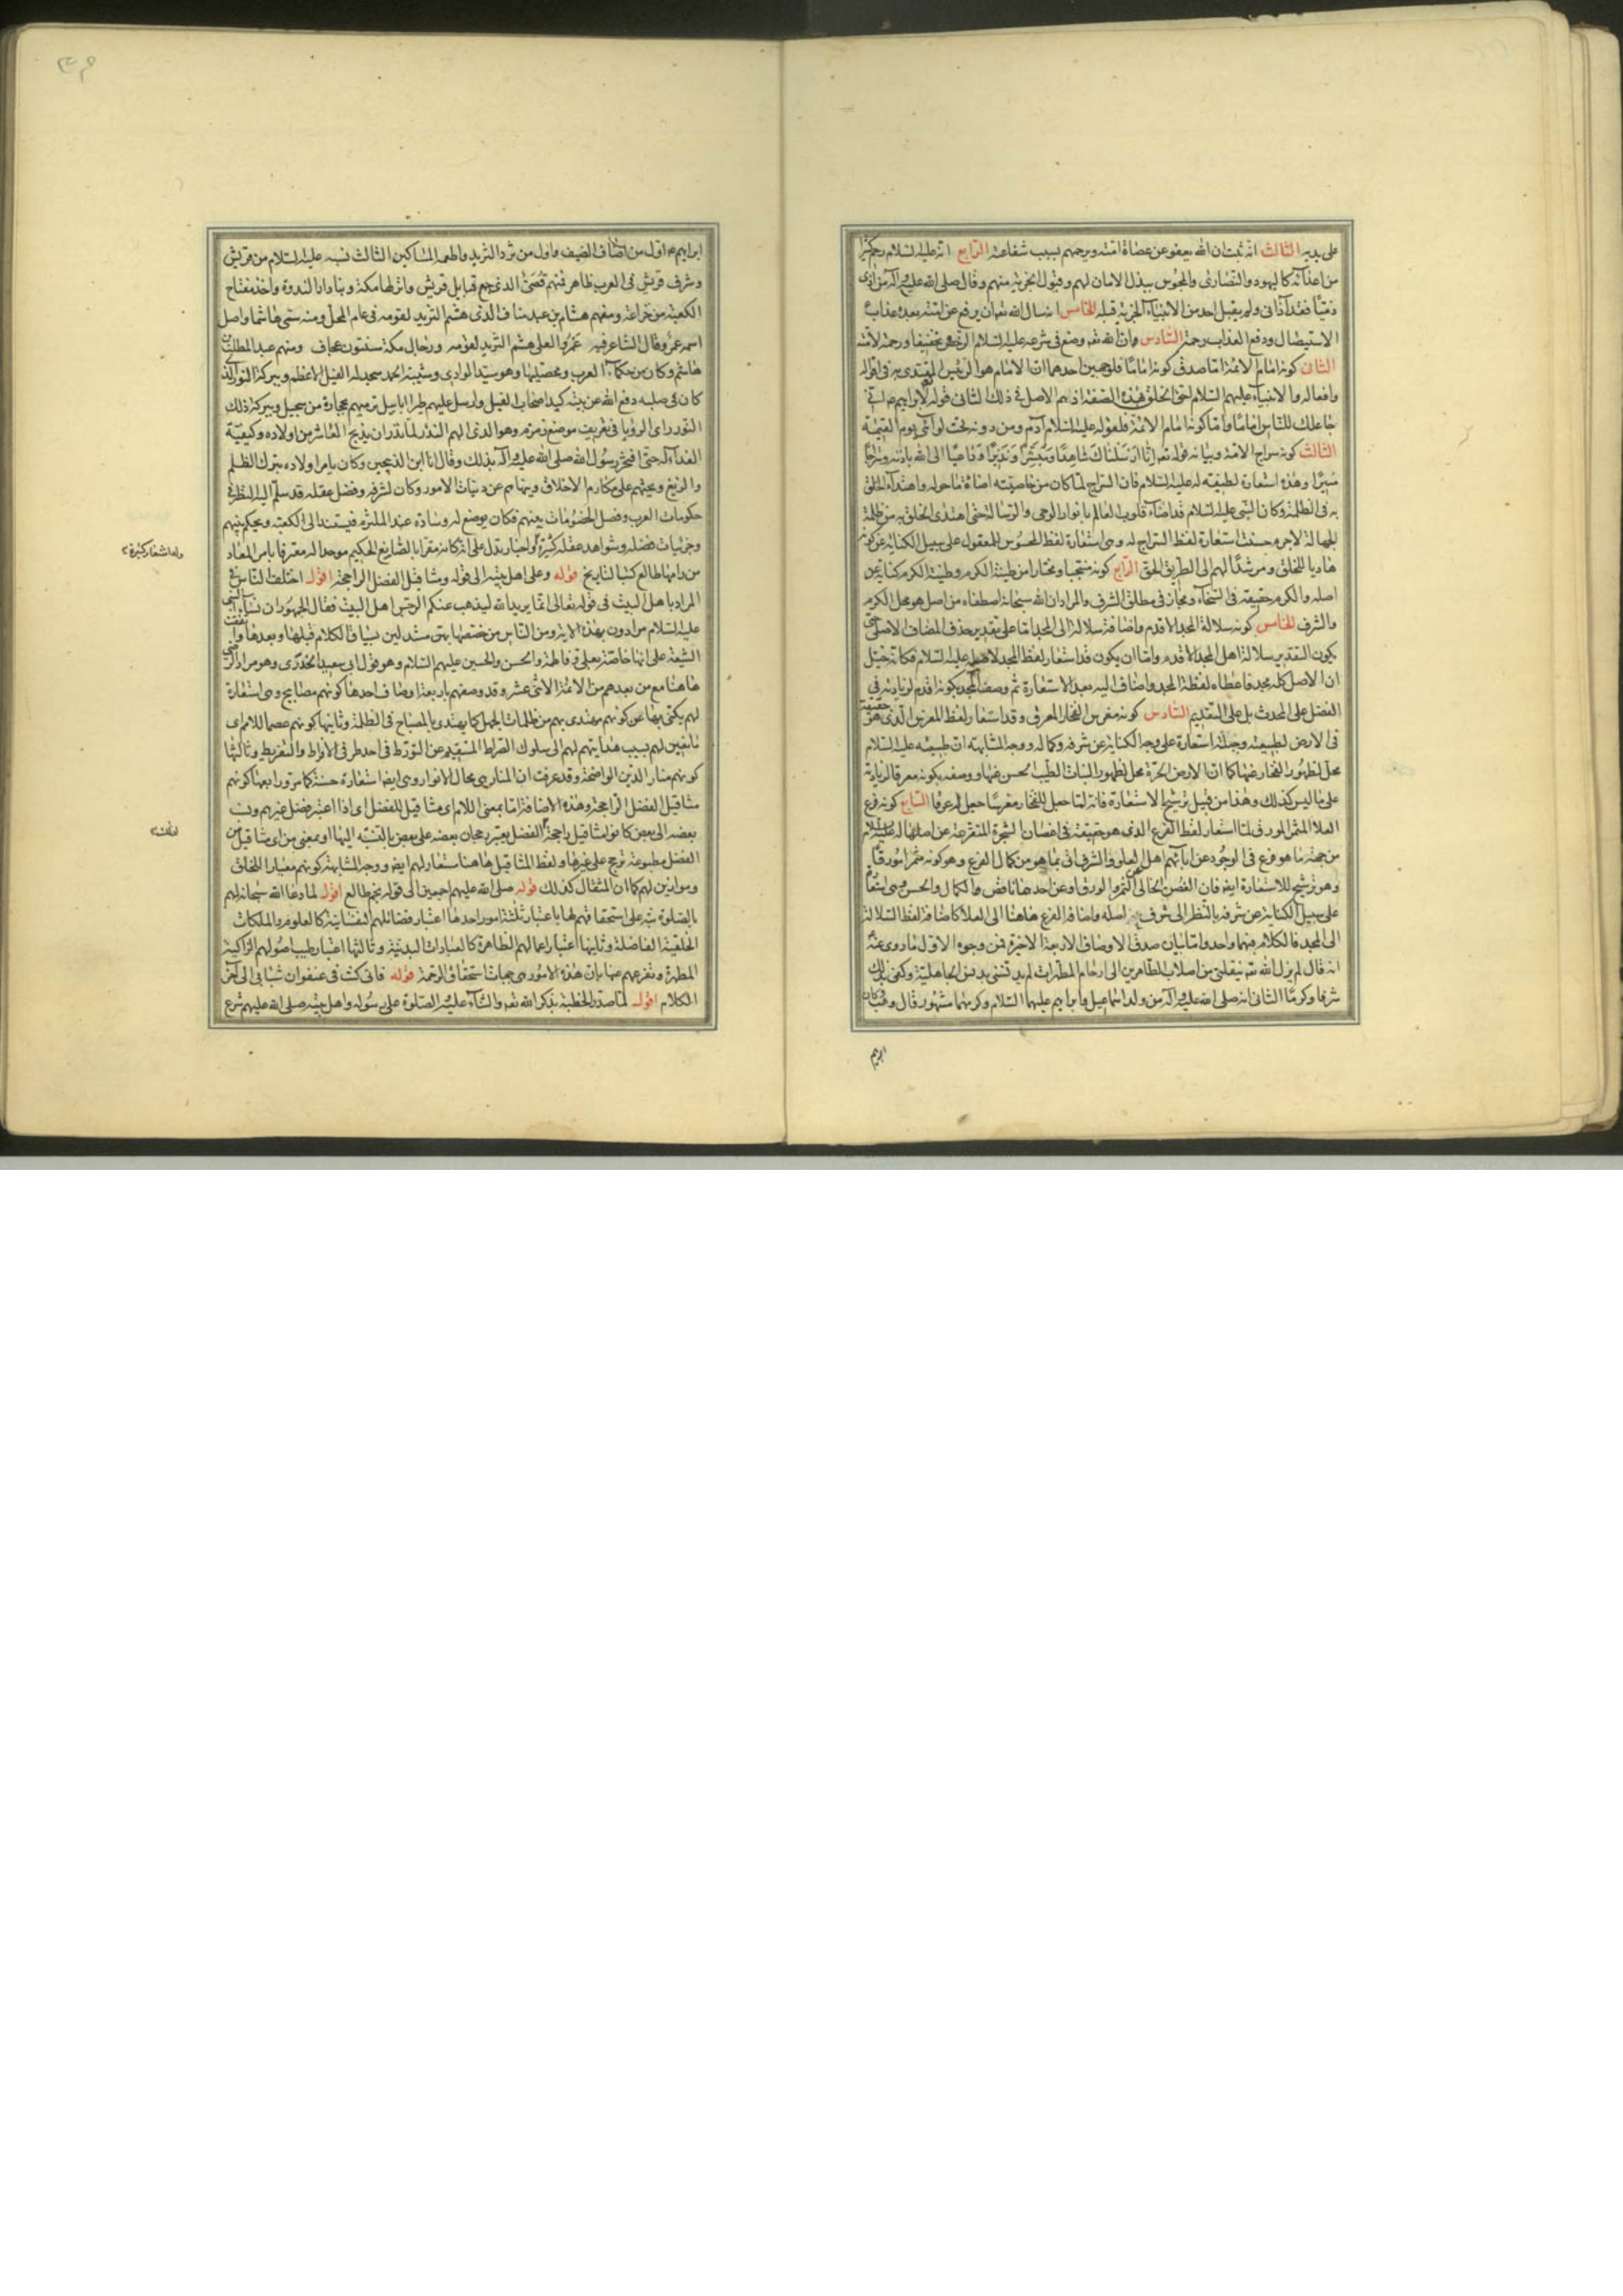 على يديه الثالث انه ثبت ان الله يعفو عن عصاة امته ويرحمهم بسبب شفاعته الرابع انه عليه السلام رحم كثيرا
من اعدائه كاليهود والنصارى والمجوس ببذل الامان لهم وقبول الجزية منهم وقال صلى الله عليه وآله من اذى
ذميا فقد آذانى ولم يقبل احد من الانبياء الجزية قبله الخامس انه سال الله تعه ان يرفع عن امته بعده عذاب
الاستيصال ودفع العذاب رحمة السادس ان الله تعه وضع فى شرعه عليه السلام الرخص تخفيفا ورحمة لامته
الثانى كونه امام الائمة اما صدق كونه اماما فلوجهين احدهما ان الامام هو الرئيس المقتدى به فى اقواله
وافعاله والانبياء عليهم السلام احق الخلق بهذه الصفة اذ هم الاصل فى ذلك الثانى قوله لابراهيم عم انى
جاعلك للناس اماما واما كونه امام الائمة فلقوله عليه السلام آدم ومن دونه تحت لوائى يوم القيمة
الثالث كونه سراج الامة وبيانه قوله تعه انا ارسلناك شاهدا ومبشرا ونذيرا وداعيا الى الله باذنه وسراجا
منيرا وهذه استعارة لطيفة له عليه السلام فان السراج لما كان من خاصيته اضاءة ما حوله واهتداء الخلق
به فى الظلمة وكان النبى عليه السلام قد اضاء قلوب العالم بانوار الوحى والرسالة حتى اهتدى الخلق به من ظلمة
الجهالة لاجرم حسنت استعارة لفظ السراج له وهى استعارة لفظ المحسوس للمعقول على سبيل الكناية عن كونه
هاديا للخلق ومرشدا لهم الى الطريق الحق الرابع كونه منتجبا ومختارا من طينة الكرم وطينة الكرم كناية عن
اصله والكرم حقيقة فى السخاء ومجاز فى مطلق الشرف والمراد ان الله سبحانه اصطفاه من اصل هو محل الكرم
والشرف الخامس كونه سلالة المجد الاقدم واضافة سلالة الى المجد اما على تقدير حذف المضاف الاصلى حتى
يكون التقدير سلالة اهل المجد الاقدم واما ان يكون قد استعار لفظ المجد لاهله عليه السلام فكانه تخيل
ان الاصل كله مجد فاعطاه لفظة المجد واضاف اليه بعد الاستعارة ثم وصف المجد بكونه اقدم لزيادته فى
الفضل على المحدث بل على القديم السادس كونه مغرس الفخار المعرق وقد استعار لفظ المغرس الذى هو حقيقة
فى الارض لطبيعته وجعله استعارة على وجه الكناية عن شرفه وكماله ووجه المشابهة ان طبيعته عليه السلام
محل لظهور الفخار عنها كما ان الارض الحرة محل لظهور النبات الطيب الحسن عنها ووصفه بكونه معرقا لزيادته
على ما ليس كذلك وهذا من قبيل ترشيح الاستعارة فانه لما جعل للفخار مغرسا جعل له عرقا السابع كونه فرع
العلا المثمر المورق لما استعار لفظ الفرع الذى هو حقيقة فى اغصان الشجرة المتفرعة عن اصلها له عليه السلام
من جهة ما هو فرع فى الوجود عن ابائهم اهل العلو والشرف اتى بما هو من كمال الفرع وهو كونه مثمرا مورقا
وهو ترشيح للاستعارة ايضا فان الغصن الخالى عن الثمر والورق او عن احدهما ناقص الكمال والحسن وهى ايضا
على سبيل الكناية عن شرفه بالنظر الى شرف اصله واضافة الفرع هاهنا الى العلا كاضافة لفظ السلالة
الى المجد فالكلام فيهما واحد واما بيان صدق الاوصاف الاربعة الاخيرة فمن وجوه الاول ما روى عنه
انه قال لم يزل الله تعه ينقلنى من اصلاب الطاهرين الى ارحام المطهرات لم يدنسنى بدنس الجاهلية وكفى بذلك
شرفا وكرما الثانى انه صلى الله عليه وآله من ولد اسماعيل وابراهيم عليهما السلام وكرمهما مشهور قال وهب كان
ابراهيم
ابراهيم عم اول من اضاف الضيف واول من ثرد الثريد واطعمه المساكين الثالث نسبه عليه السلام من قريش
وشرف قريش فى العرب ظاهر فمنهم قصى الذى جمع قبايل قريش وانزلها مكة وبنا دار الندوة واخذ مفتاح
الكعبة من خزاعة ومنهم هشام بن عبد مناف الذى هشم الثريد لقومه فى عام المحل ومنه سمى هاشما واصل
اسمه عمرو قال الشاعر فيه عمرو العلى هشم الثريد لقومه ورجال مكة مسنتون عجاف ومنهم عبد المطلب بن
هاشم وكان من حكماء العرب ومحصليها وهو سيد الوادى وشيبة الحمد سجد له الفيل الاعظم وببركة النور الذى
كان فى صلبه دفع الله عن بيته كيد اصحاب الفيل وارسل عليهم طيرا ابابيل ترميهم بحجارة من سجيل وببركة ذلك
النور راى الرؤيا فى تعريف موضع زمزم وهو الذى الهم النذر لما نذر ان يذبح العاشر من اولاده وكيفية
الفداء له حتى افتخر رسول الله صلى الله عليه وآله بذلك وقال انا ابن الذبيحين وكان يامر اولاده بترك الظلم
والزيغ ويحثهم على مكارم الاخلاق وينهاهم عن دنيات الامور وكان لشرفه وفضل عقله قد سلم اليه النظر فى
حكومات العرب وفصل الخصومات بينهم فكان يوضع له وسادة عند الملتزم فيستند الى الكعبة ويحكم بينهم
وجزئيات فضله وشواهد عقله كثيرة واخبار تدل على انه كان مقرا بالصانع الحكيم موحدا له معترفا بامر المعاد
وله اشعار كثيرة
من رامها طالع كتب التاريخ قوله وعلى اهل بيته الى قوله ومثاقيل الفضل الراجحة اقول اختلف الناس فى
المراد باهل البيت فى قوله تعالى انما يريد الله ليذهب عنكم الرجس اهل البيت فقال الجمهور ان نساء النبى
عليه السلام مرادون بهذه الاية ومن الناس من خصصها بهن مستدلين بسياق الكلام قبلها وبعدها واتفقت
الشيعة على انها خاصة بعلى وفاطمة والحسن والحسين عليهم السلام وهو قول ابى سعيد الخدرى وهو مراد الرضى
هاهنا مع من بعدهم من الائمة الاثنى عشر وقد وصفهم باربعة اوصاف احدها كونهم مصابيح وهى استعارة
لهم يكنى بها عن كونهم يهتدى بهم من ظلمات الجهل كما يهتدى بالمصباح فى الظلمة وثانيها كونهم عصما للامم اى
مانعين لهم بسبب هدايتهم لهم الى سلوك الصراط المستقيم عن التورط فى احد طرفى الافراط والتفريط وثالثها
كونهم منار الدين الواضحة وقد عرفت ان المنار هى محال الانوار وهى ايضا استعارة حسنة كما مر ورابعها كونهم
مثاقيل الفضل الراجحة وهذه الاضافة اما بمعنى اللام اى مثاقيل للفضل اى اذا اعتبر فضل غيرهم ونسب
بعضه الى بعض كانوا مثاقيل راجحة الفضل يعتبر رجحان بعضه على بعض بالنسبة اليها او بمعنى من اى مثاقيل من
الفضل مطبوعة ترجح على غيرها ولفظ المثاقيل هاهنا مستعار لهم ايضا ووجه المشابهة كونهم معيارا للخلق
وموازين لهم كما ان المثقال كذلك قوله صلى الله عليهم اجمعين الى قوله نجم طالع اقول لما دعا الله سبحانه لهم
بالصلوة نبه على استحقاقهم لها باعتبار ثلثة امور احدها اعتبار فضائلهم النفسانية كالعلوم والملكات
الخلقية الفاضلة وثانيها اعتبار اعمالهم الظاهرة كالعبادات البدنية وثالثها اعتبار طيب اصولهم الزاكية
المطهرة وتفرعهم عنها بان هذه الامور هى جهات استحقاق الرحمة قوله فانى كنت فى عنفوان شبابى الى آخر
الكلام اقول لما صدر الخطبة بذكر الله تعه والثناء عليه والصلوة على رسوله واهل بيته صلى الله عليهم شرع